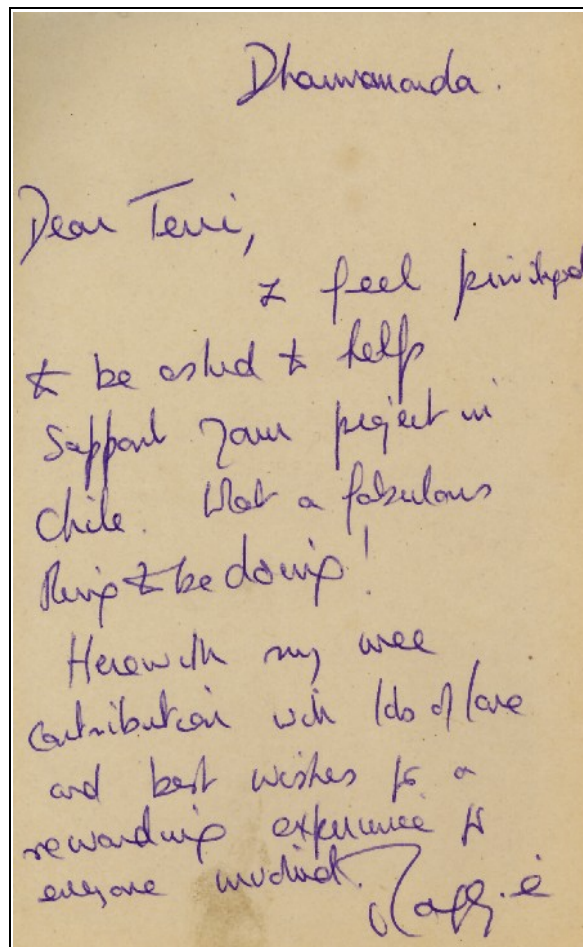 Dear Terri,
I feel privileged
to be asked to help
support your project in
Chile. What a fabulous
thing to be doing!
Herewith my wee
contribution with lots of love
and best wishes for a
rewarding experience for
everyone involved.